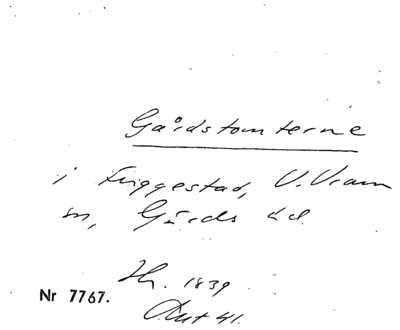 Gårdstomterne
i Friggestad, V. Vram
sn, Gärds hd.
Hr. 1839
Akt 41.
Nr 7767.